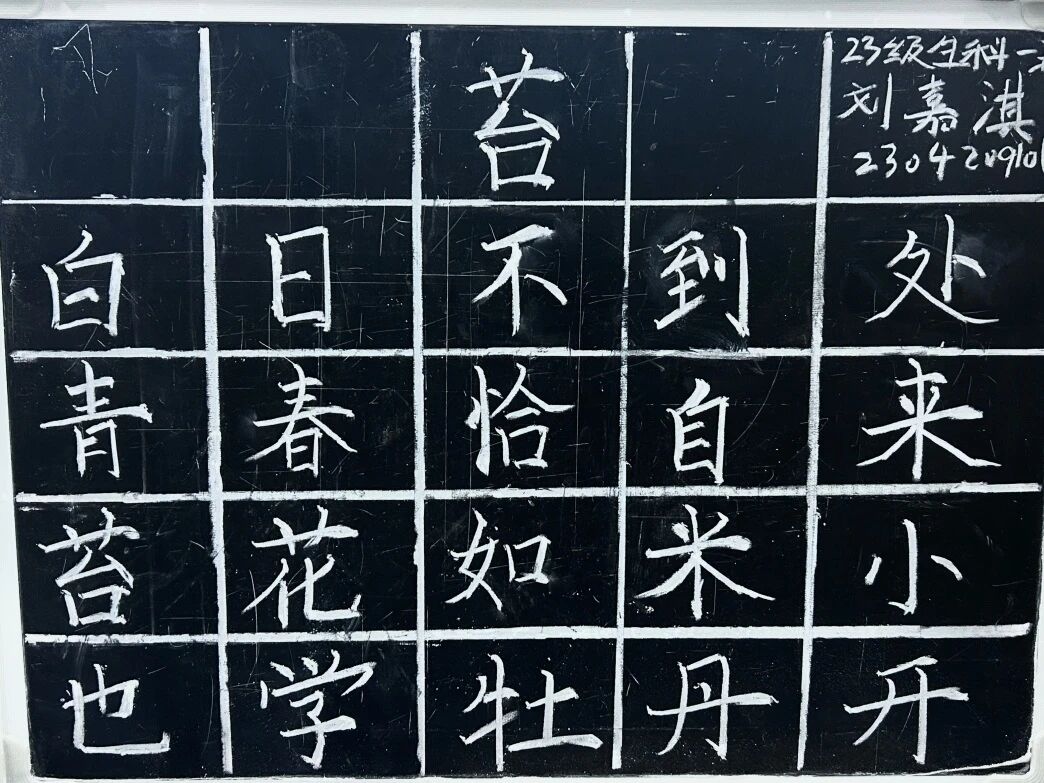 苔
23级生科一
刘嘉淇
2304209101
白日不到处
青春恰自来
苔花如米小
也学牡丹开